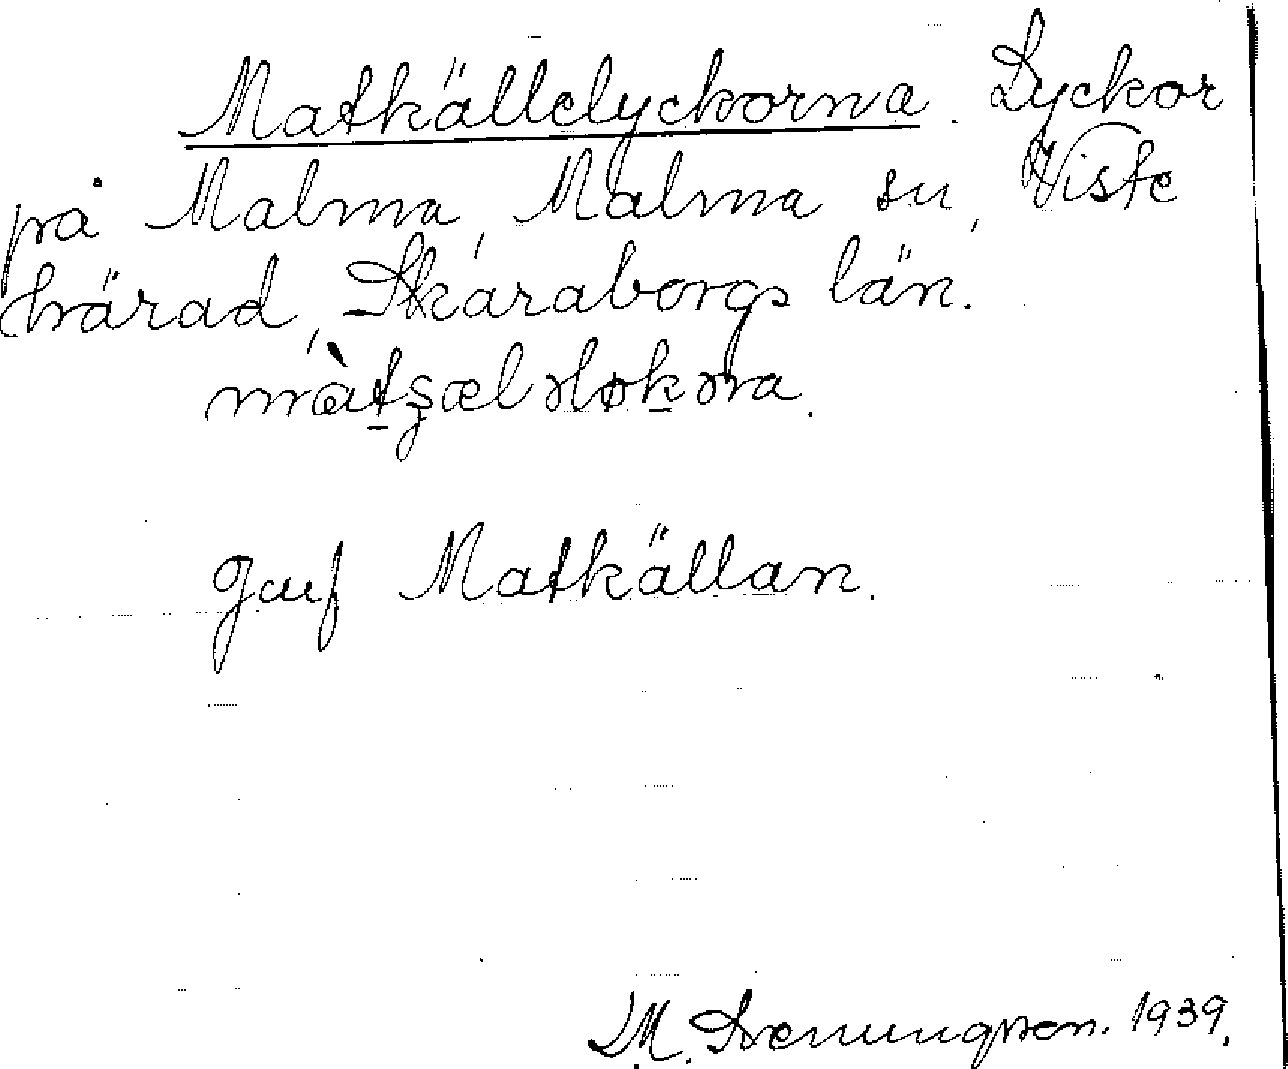 Matkällelyckorna. Lyckor
på Malma, Malma sn, Viste
härad, Skaraborgs län.
Jmf Matkällan.
1939.